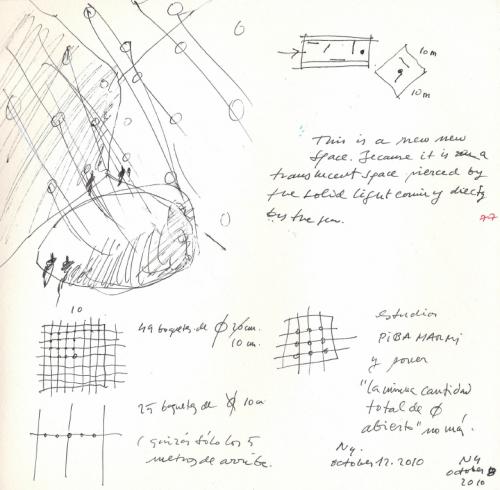 10m
10m
This is a new new
space. Because it is a
translucent space pierced by
the solid light coming directly
by the sun.
10
49 boquetes de Ø
10 cm.
25 boquetes de Ø 10 cm
(quizás sólo los 5
metros de arriba.
estudiar
y poner
"la misma cantidad
total de Ø
abierto" no más.
Ny.
october 12. 2010
NY
october
2010